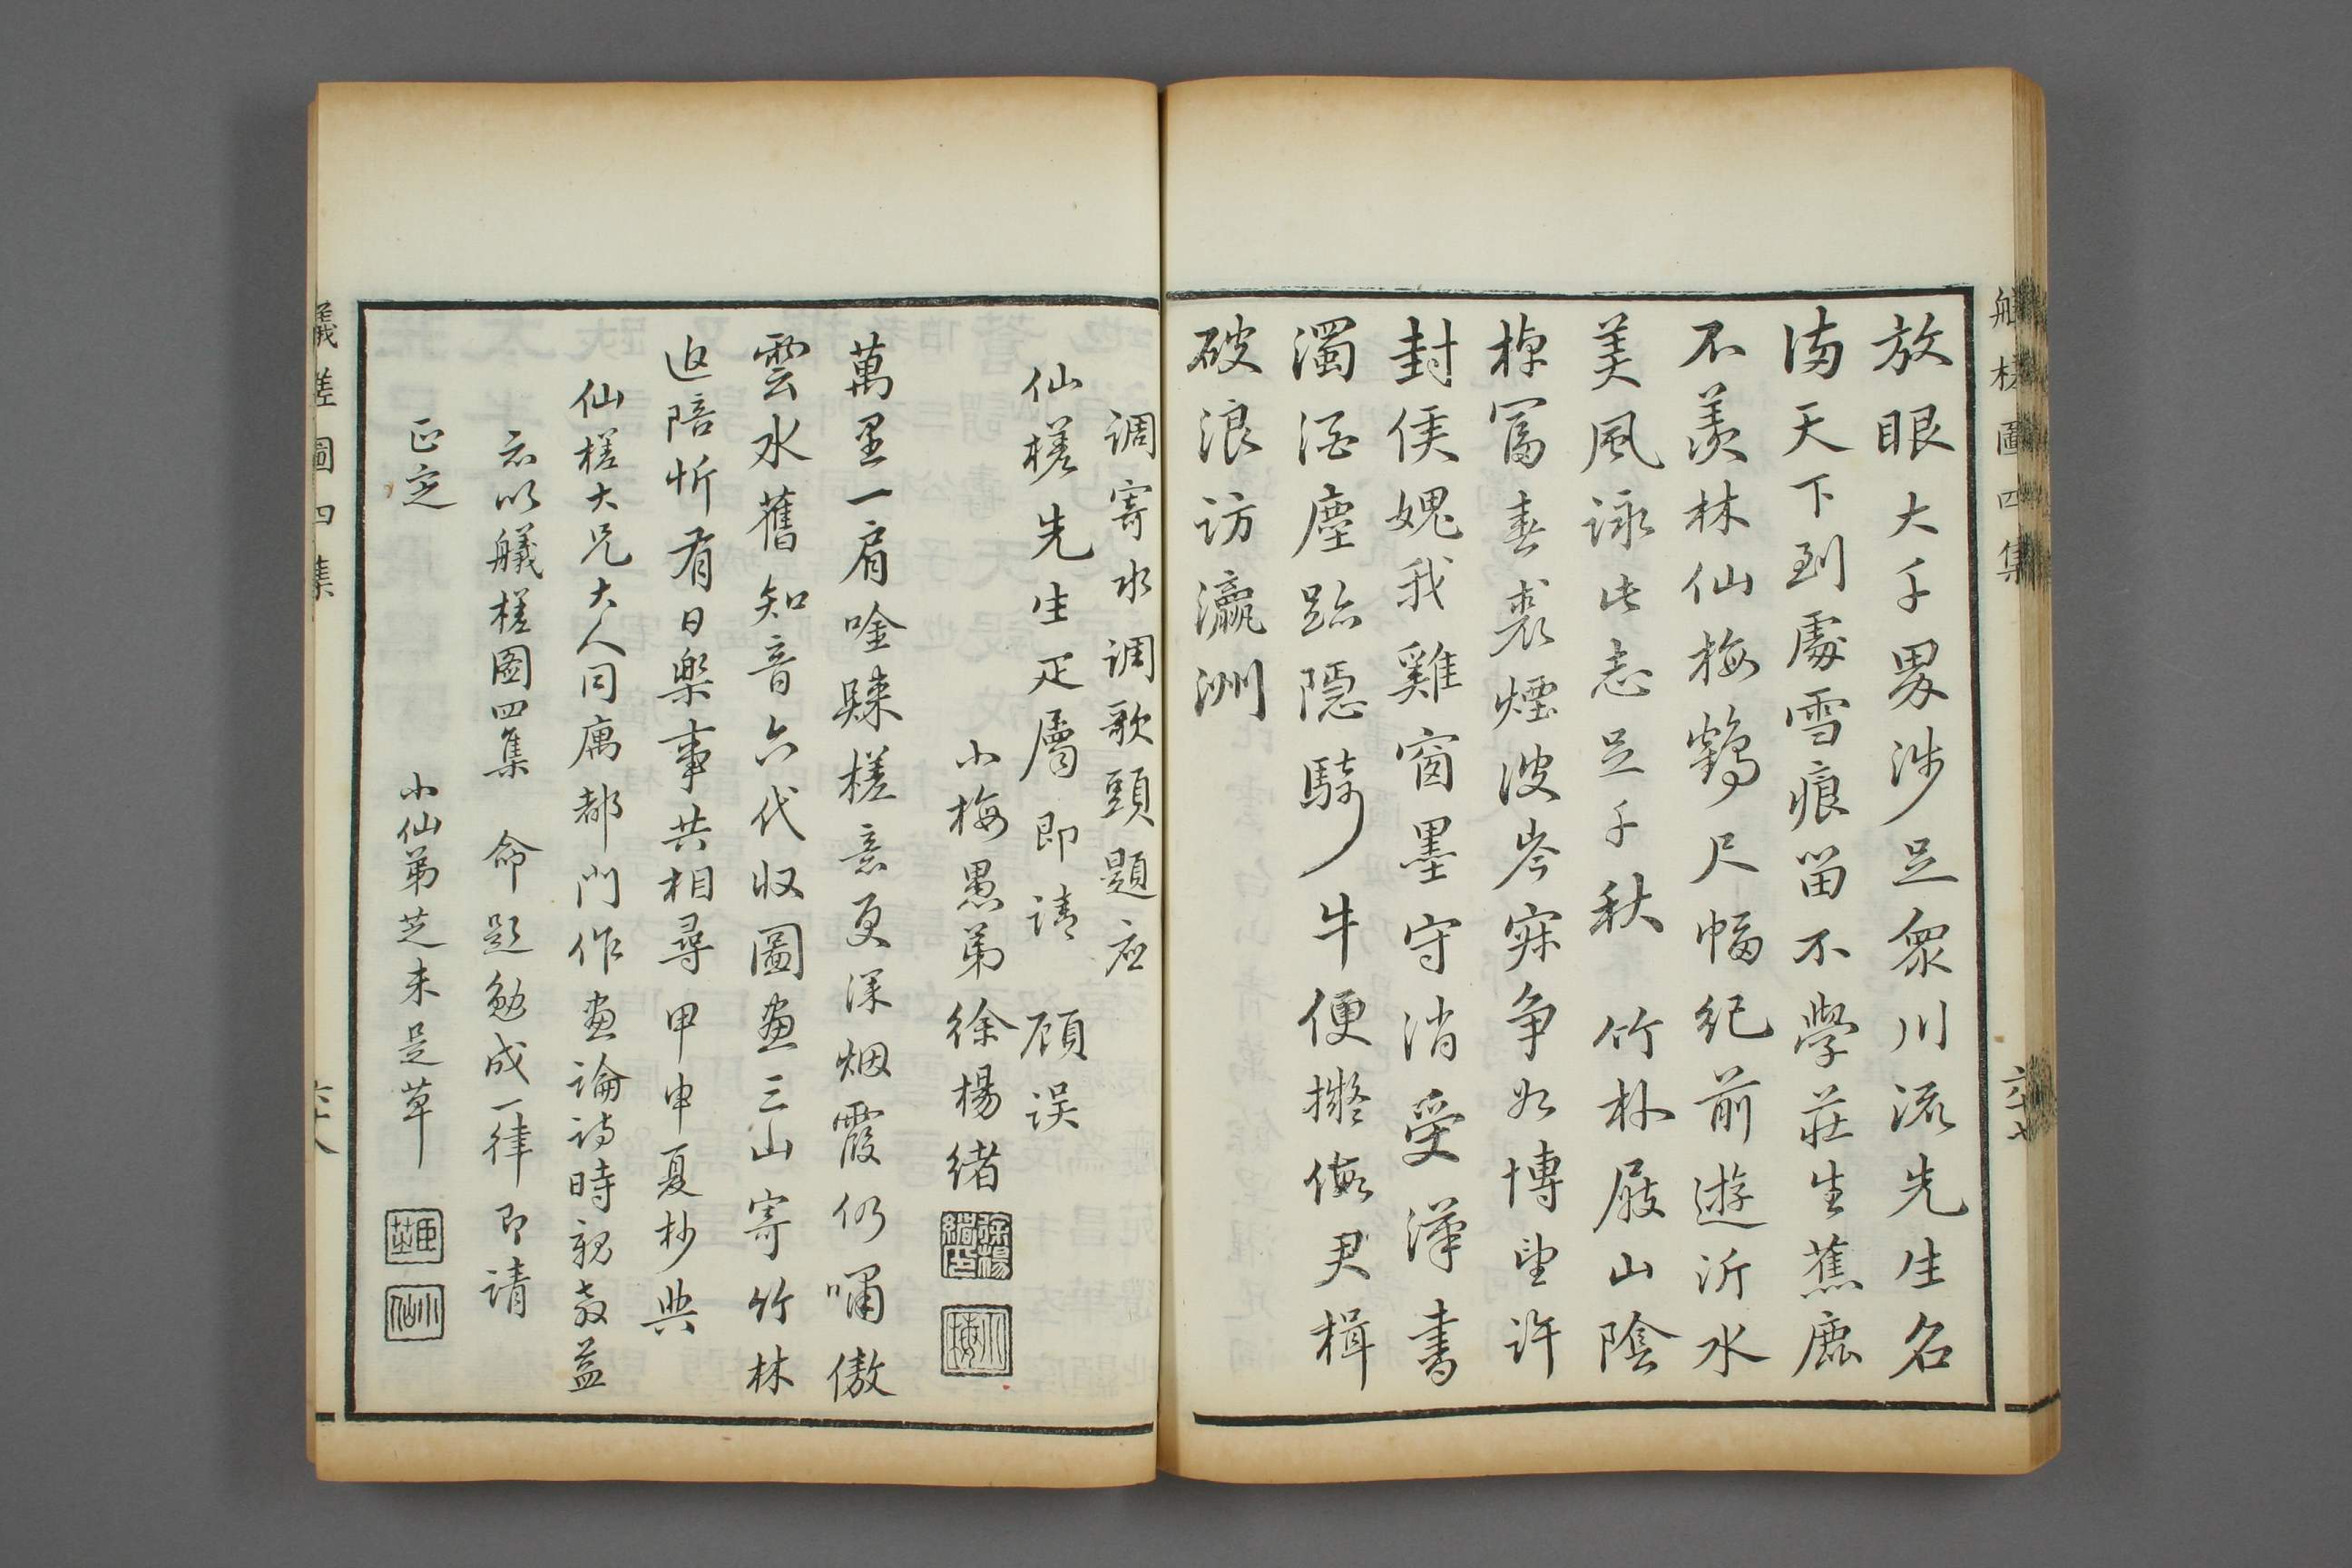 艤槎圖四集
六十七
放眼大千界涉足衆川流先生名
滿天下到處雪痕留不學莊生蕉鹿
不羨林仙梅鶴尺幅紀前遊沂水
美風詠此志足千秋 竹杖屐山陰
棹富春裘煙波岑寂争如博望許
封侯媿我雞窗墨守消受漢書
濁酒塵跡隱騎牛便擬假君楫
破浪访瀛洲
调寄水调歌頭題应
仙槎先生疋屬即請 顧误
小梅愚弟徐楊緒
徐楊緒印
小梅
萬里一肩唫賺槎意更深烟霞仍嘯傲
雲水舊知音六代收圖畫三山寄竹林
追陪忻有日樂事共相尋甲申夏杪與
仙槎大兄大人同寓都門作畫論詩時親教益
示以艤槎圖四集 命題勉成一律即請
正定
小仙弟芝未是草
小仙
艤槎圖四集
六十八